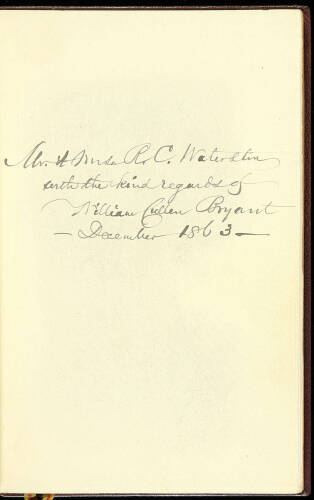 Mr. & Mrs. R. C. Waterston
with the kind regards of
William Cullen Bryant
— December 1863 —